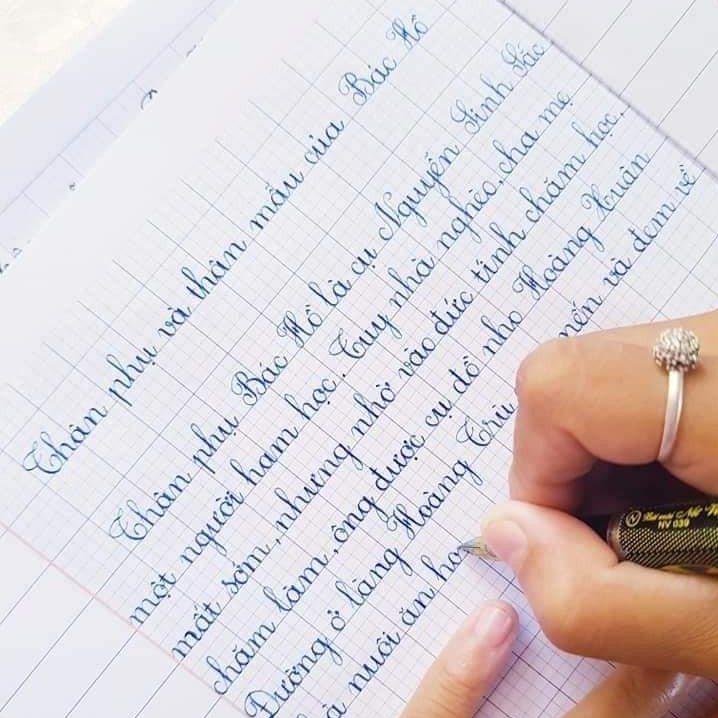 Thân phụ và thân mẫu của Bác Hồ
Thân phụ Bác Hồ là cụ Nguyễn Sinh Sắc
một người ham học. Tuy nhà nghèo, cha mẹ
mất sớm, nhưng nhờ vào đức tính chăm học,
chăm làm, ông được cụ đồ nho Hoàng Xuân
Đường ở làng Hoàng Trù mến và đem về
nuôi ăn
NV 039